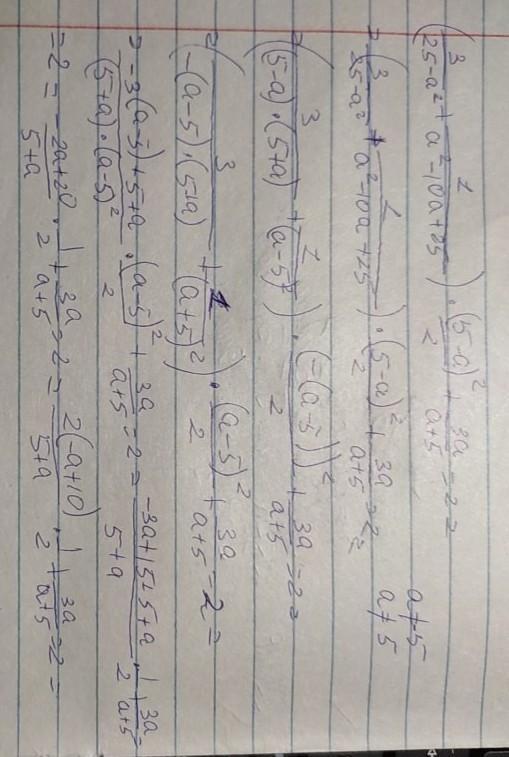 (3/(25-a²) + 1/(a²-10a+25)) · (5-a)²/2 + 3a/(a+5) = 2 =
= (3/(25-a²) + 1/(a²-10a+25)) · (5-a)²/2 + 3a/(a+5) = 2 = a ≠ -5 a ≠ 5
= (3/((5-a)·(5+a)) + 1/(a-5)²) · (-(a-5))²/2 + 3a/(a+5) = 2 =
= (3/(-(a-5)·(5+a)) + 1/(a+5)²) · (a-5)²/2 + 3a/(a+5) = 2 =
= (-3(a-5)+5+a)/((5+a)·(a-5)²) · (a-5)²/2 + 3a/(a+5) = 2 = (-3a+15+5+a)/(5+a) · 1/2 + 3a/(a+5) =
= 2 = (-2a+20)/(5+a) · 1/2 + 3a/(a+5) = 2 = 2(-a+10)/(5+a) · 1/2 + 3a/(a+5) = 2 =